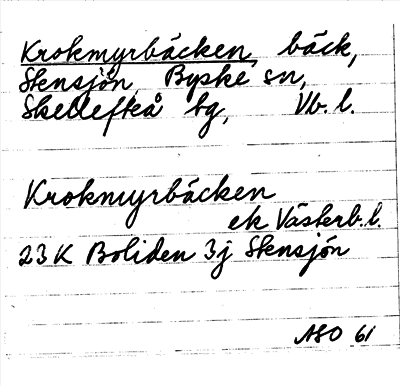 Krokmyrbäcken, bäck,
Stensjön, Byske sn,
Skellefteå tg, Vb. l.
Krokmyrbäcken
ek Västerb. l.
23 K Boliden 3j Stensjön
ASO 61